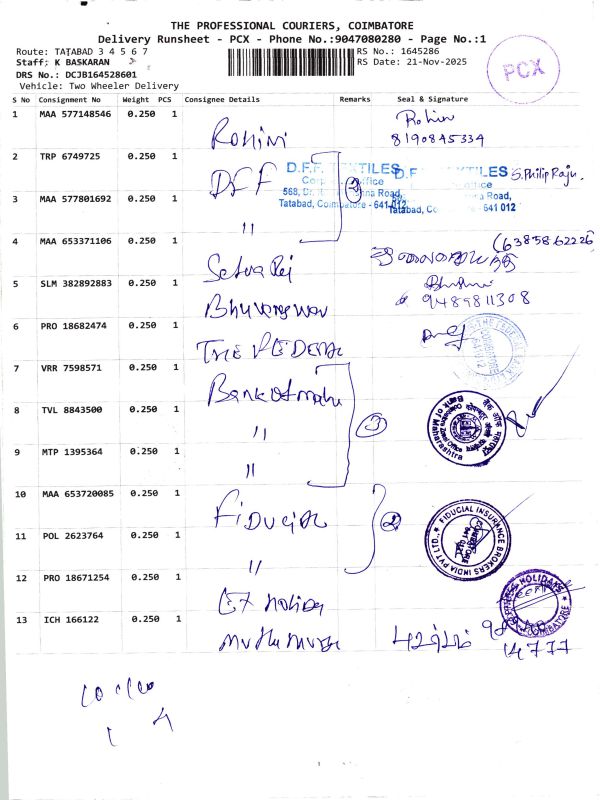 THE PROFESSIONAL COURIERS, COIMBATORE
Delivery Runsheet - PCX - Phone No.:9047080280 - Page No.:1
Route: TATABAD 3 4 5 6 7
RS No.: 1645286
Staff: K BASKARAN
RS Date: 21-Nov-2025
DRS No.: DCJB164528601
Vehicle: Two Wheeler Delivery
PCX
S No Consignment No Weight PCS Consignee Details Remarks Seal & Signature
1 MAA 577148546 0.250 1 Rohini
8190845334
2 TRP 6749725 0.250 1 DFF
D.F.F. TEXTILES
Office
Tatabad, Coimbatore - 641 012
S. Philip Raju.
3 MAA 577801692 0.250 1 "
4 MAA 653371106 0.250 1
(6385862226
5 SLM 382892883 0.250 1
9489811308
6 PRO 18682474 0.250 1 THE FEDERAL
7 VRR 7598571 0.250 1 Bank of maha
8 TVL 8843500 0.250 1 "
3
Bank of Maharashtra
9 MTP 1395364 0.250 1 "
10 MAA 653720085 0.250 1 Fiducial
2
FIDUCIAL INSURANCE BROKERS INDIA PVT LTD.
11 POL 2623764 0.250 1 "
12 PRO 18671254 0.250 1 Holiday
HOLIDAYS
COIMBATORE
13 ICH 166122 0.250 1
14777